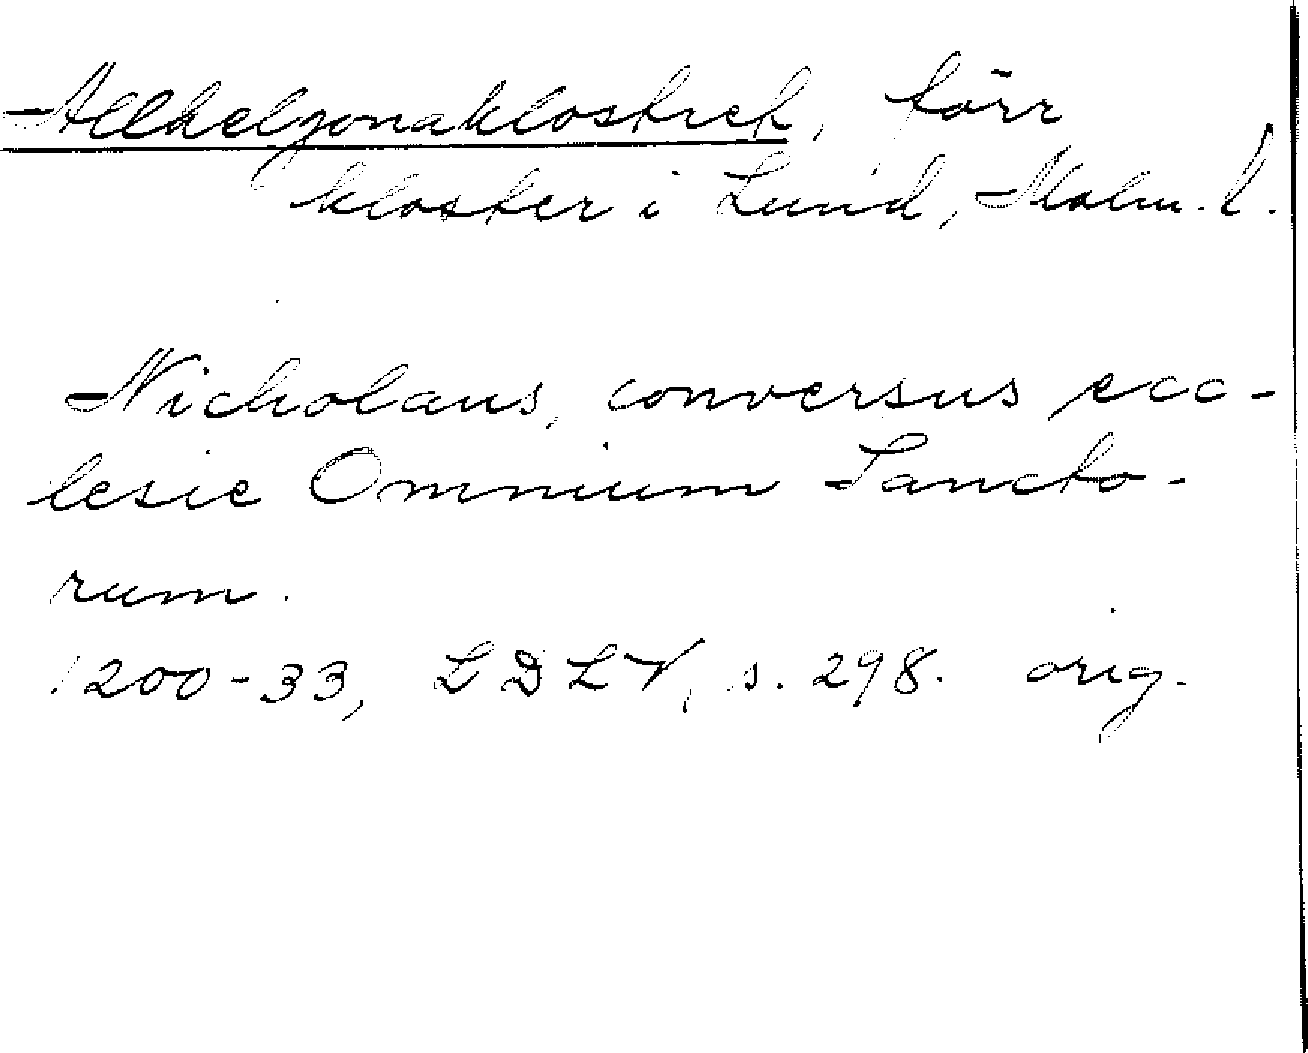 Allhelgonaklostret, förr
kloster i Lund, Malm. l.
Nicholaus, conversus ecc-
lesie Omnium Sancto-
rum.
1200-33, LDLV, s. 298. orig.